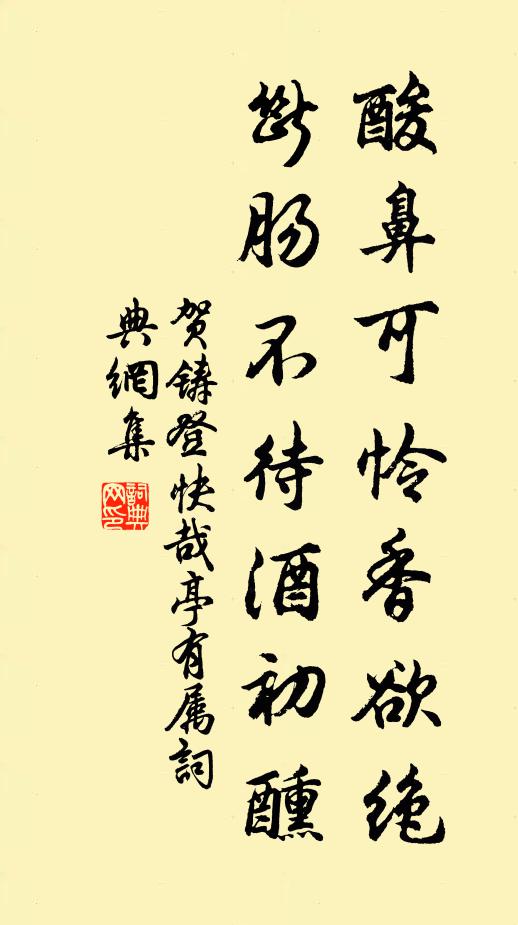 酸鼻可怜香欲绝
断肠不待酒初醺
贺铸登快哉亭有属詞
典網集
詞典网印